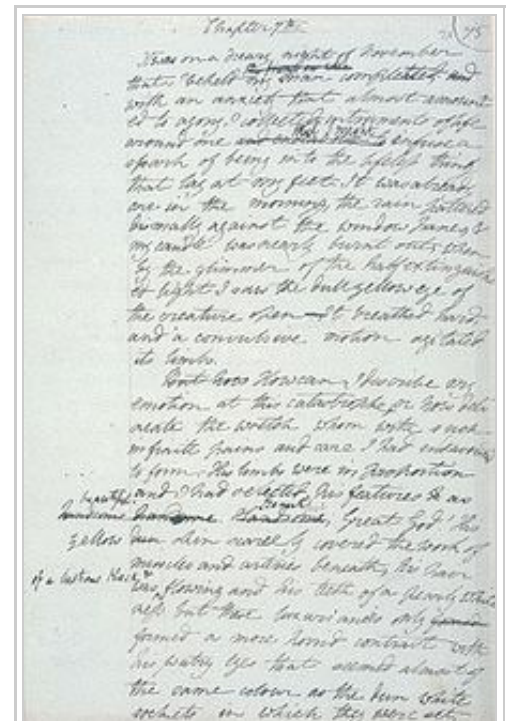 Chapter 7th
75
It was on a dreary night of November
that I beheld my man completed, and
with an anxiety that almost amount
ed to agony, I collected instruments of life
around me that I might infuse a
spark of being into the lifeless thing
that lay at my feet. It was already
one in the morning, the rain pattered
dismally against the window panes, &
my candle was nearly burnt out, when
by the glimmer of the half extinguish
ed light I saw the dull yellow eye of
the creature open—It breathed hard,
and a convulsive motion agitated
its limbs.
But how How can I describe my
emotion at this catastrophe, or how deli
neate the wretch whom with such
infinite pains and care I had endeavoured
to form. His limbs were in proportion
and I had selected his features & as
beautiful
handsome handsome. Great God! His
yellow dun skin scarcely covered the work of
muscles and arteries beneath; his hair
of a lustrous black &
was flowing and his teeth of a pearly white
ness but these luxuriances only
formed a more horrid contrast with
his watry eyes that seemed almost of
the same colour as the dun white
sockets in which they were set,